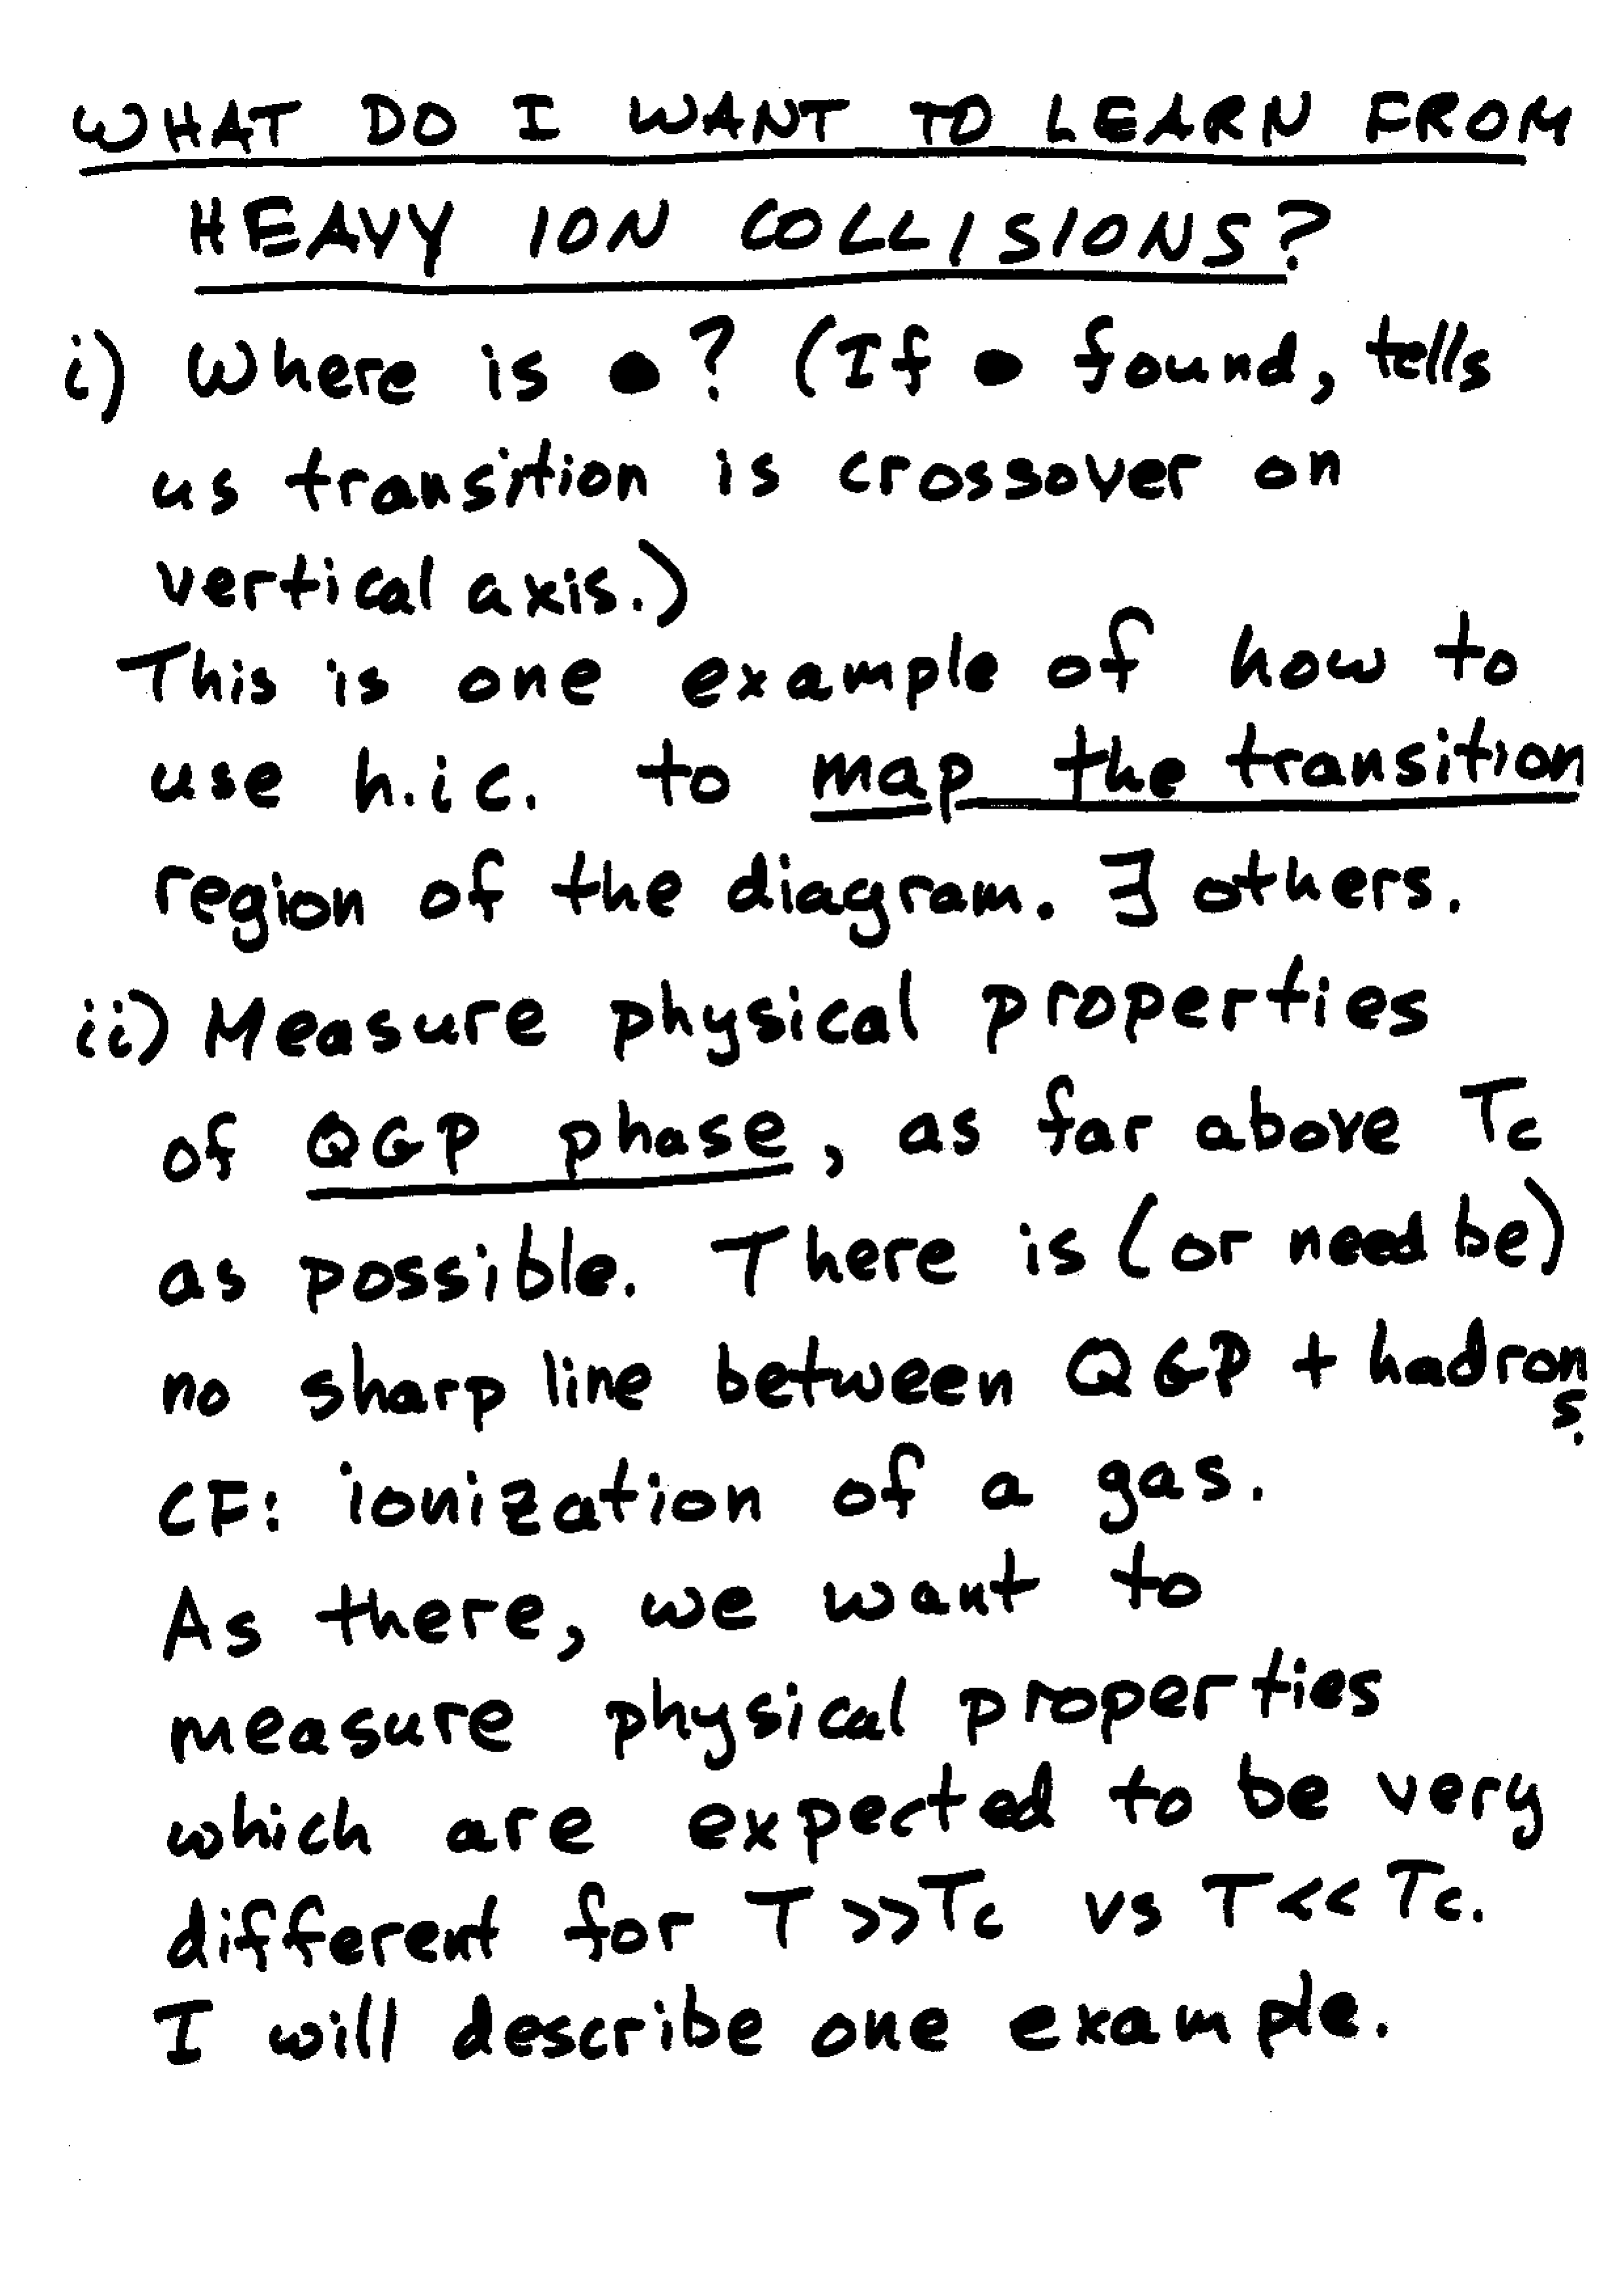 WHAT DO I WANT TO LEARN FROM
HEAVY ION COLLISIONS?
i) Where is ●? (If ● found, tells
us transition is crossover on
vertical axis.)
This is one example of how to
use h.i.c. to map the transition
region of the diagram. ∃ others.
ii) Measure physical properties
of QGP phase, as far above Tc
as possible. There is (or need be)
no sharp line between QGP + hadrons.
CF: ionization of a gas.
As there, we want to
measure physical properties
which are expected to be very
different for T >> Tc vs T << Tc.
I will describe one example.